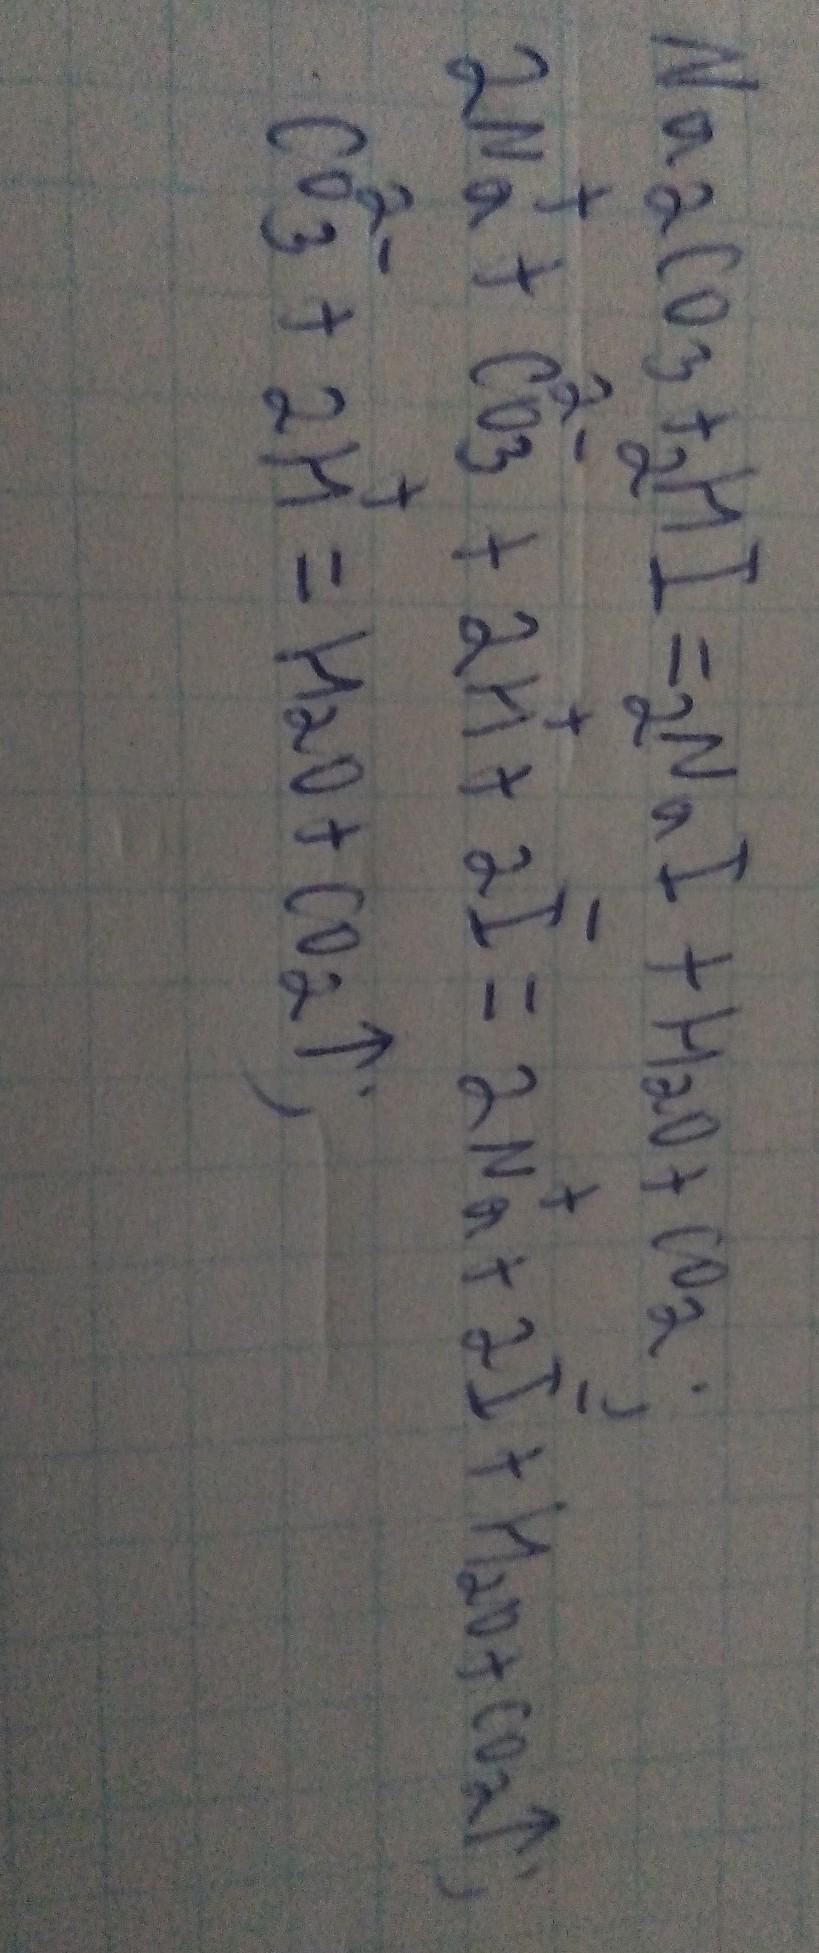 Na2CO3 + 2HI = 2NaI + H2O + CO2;
2Na⁺ + CO3²⁻ + 2H⁺ + 2I⁻ = 2Na⁺ + 2I⁻ + H2O + CO2↑;
CO3²⁻ + 2H⁺ = H2O + CO2↑;